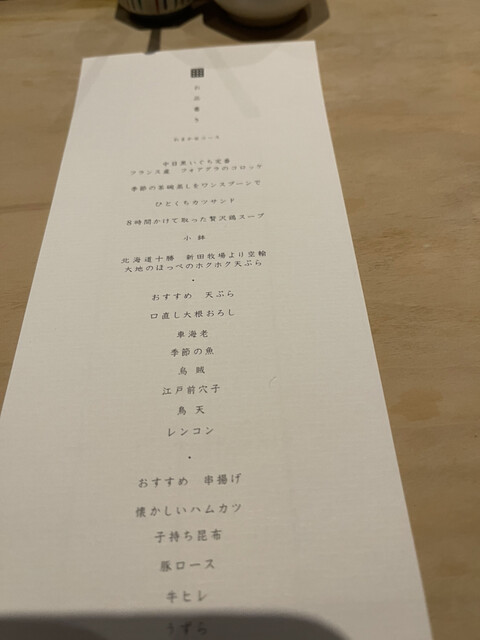 お品書き
おまかせコース
中目黒いぐち定番
フランス産 フォアグラのコロッケ
季節の茶碗蒸しをワンスプーンで
ひとくちカツサンド
8時間かけて取った贅沢鶏スープ
小鉢
北海道十勝 新田牧場より空輸
大地のほっぺのホクホク天ぷら
・
おすすめ 天ぷら
口直し大根おろし
車海老
季節の魚
烏賊
江戸前穴子
鳥天
レンコン
・
おすすめ 串揚げ
懐かしいハムカツ
子持ち昆布
豚ロース
牛ヒレ
うずら